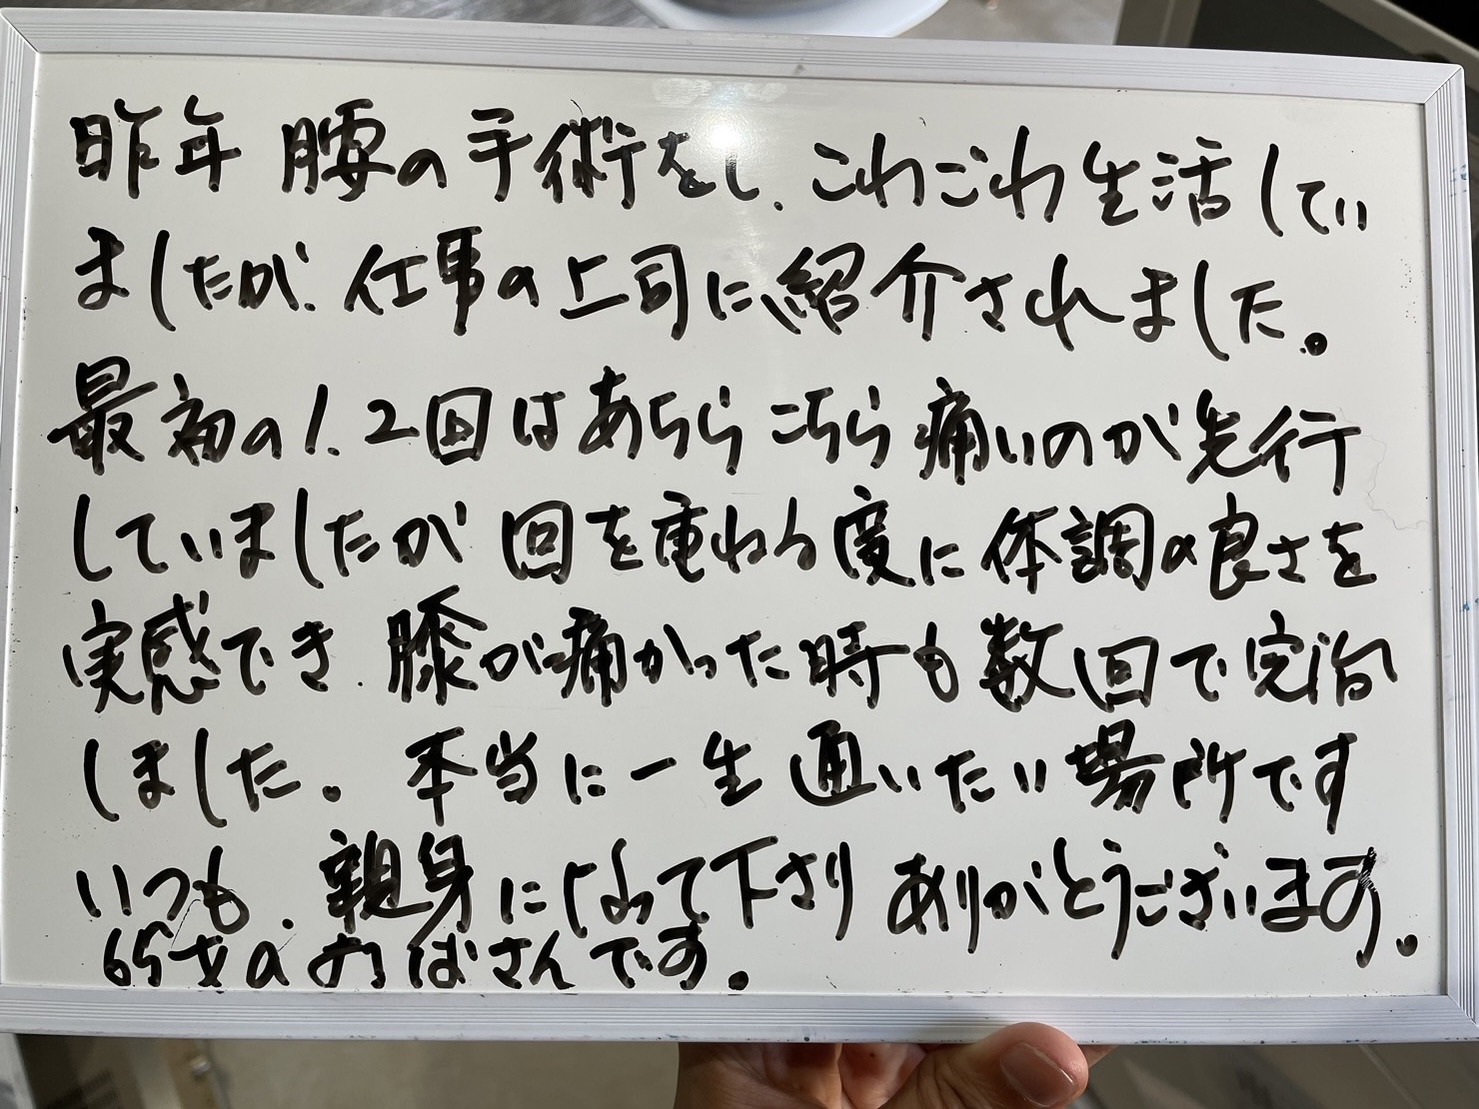 昨年 腰の手術をし、こわごわ生活してい
ましたが、仕事の上司に紹介されました。
最初の1、2回はあちらこちら痛いのが先行
していましたが 回を重ねる度に体調の良さを
実感でき、膝が痛かった時も数回で完治
しました。 本当に一生 通いたい場所です
いつも、親身になって下さり ありがとうございます。
65才のおばさんです。